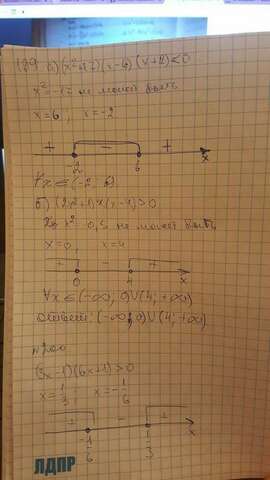 а) (x²+17)(x-6)(x+2)<0
x²=-17 не может быть
x=6, x=-2
+ - +
-2 6 x
∀x∈(-2, 6)
б) (2x²+1)x(x-4)>0
x² 0,5 не может быть
x=0, x=4
+ - +
0 4 x
∀x∈(-∞, 0)∪(4, +∞)
Ответ: (-∞, 0)∪(4, +∞)
(3x-1)(6x+1)>0
x=1/3, x=-1/6
+ - +
-1/6 1/3 x
ЛДПР